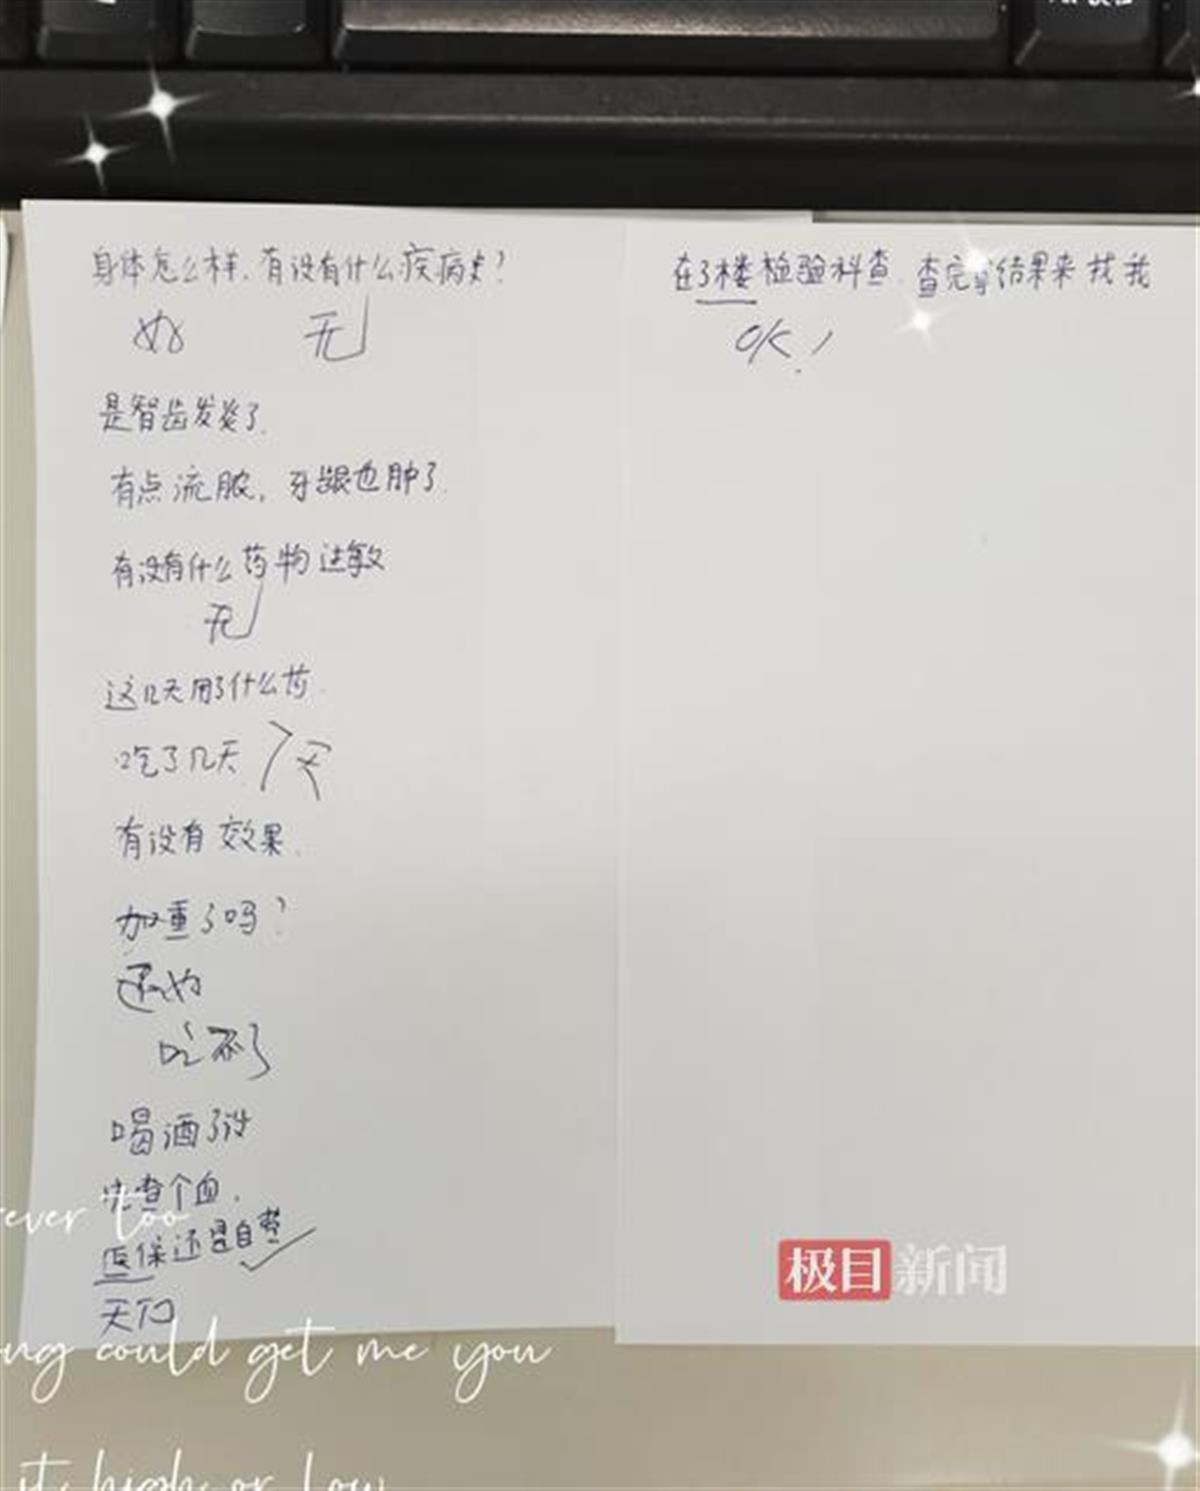 身体怎么样,有没有什么疾病史?
好 无
是智齿发炎了.
有点流脓,牙龈也肿了.
有没有什么药物过敏
无
这几天用了什么药.
吃了几天 7天
有没有效果.
加重了吗?
还好
吃不了
喝酒了没
先查个血.
医保还是自费
天门
在3楼检验科查.查完拿结果来找我
OK!
极目新闻
ever too
ng could get me you
it high or low